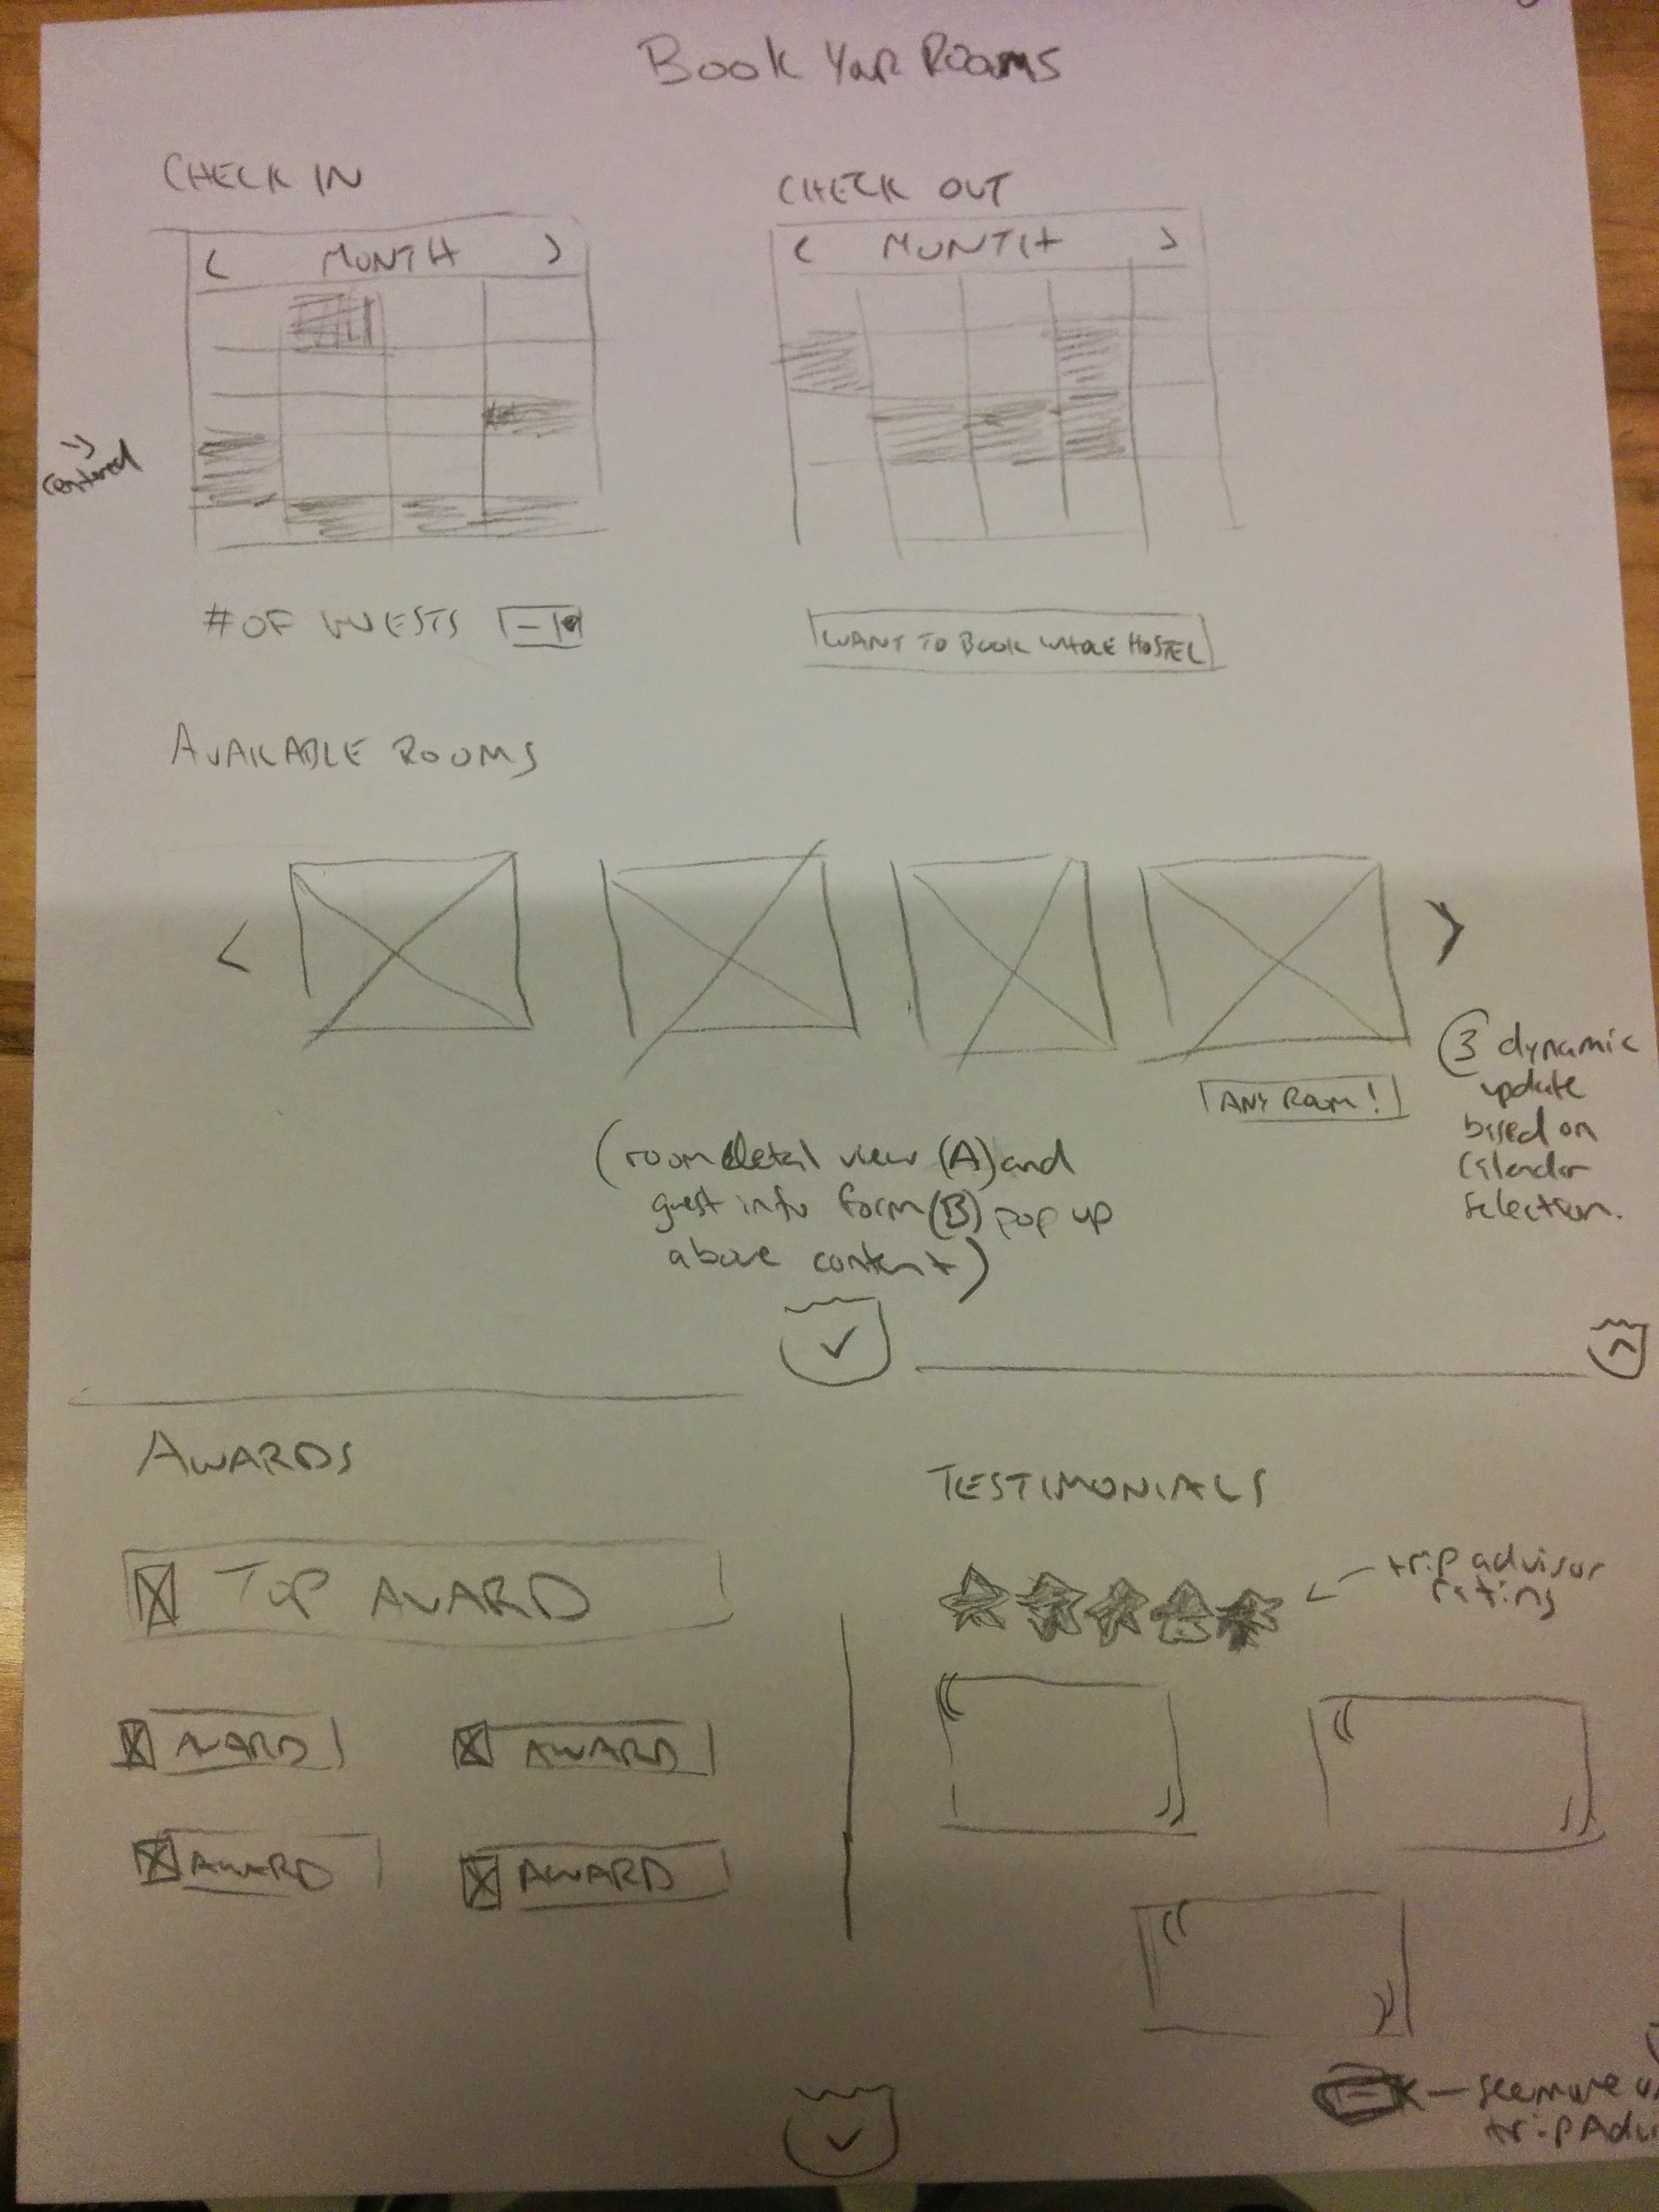 Book Your Rooms
CHECK IN
CHECK OUT
< MONTH >
< MONTH >
centered
# OF GUESTS
WANT TO BOOK WHOLE HOSTEL
AVAILABLE ROOMS
< >
ANY ROOM!
3 dynamic
update
based on
calendar
selection.
(room detail view (A) and
guest info form (B) pop up
above content)
AWARDS
TOP AWARD
AWARD
AWARD
AWARD
AWARD
TESTIMONIALS
trip advisor
rating
see more
trip Adv